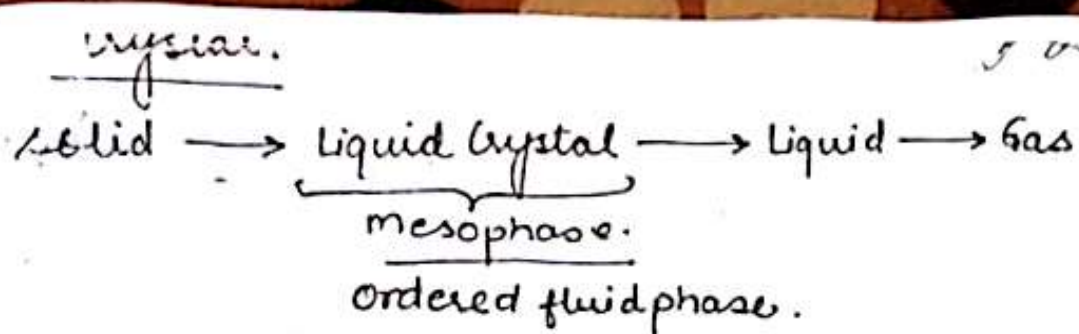 crystal.
solid → Liquid Crystal → Liquid → Gas
mesophase.
ordered fluid phase.